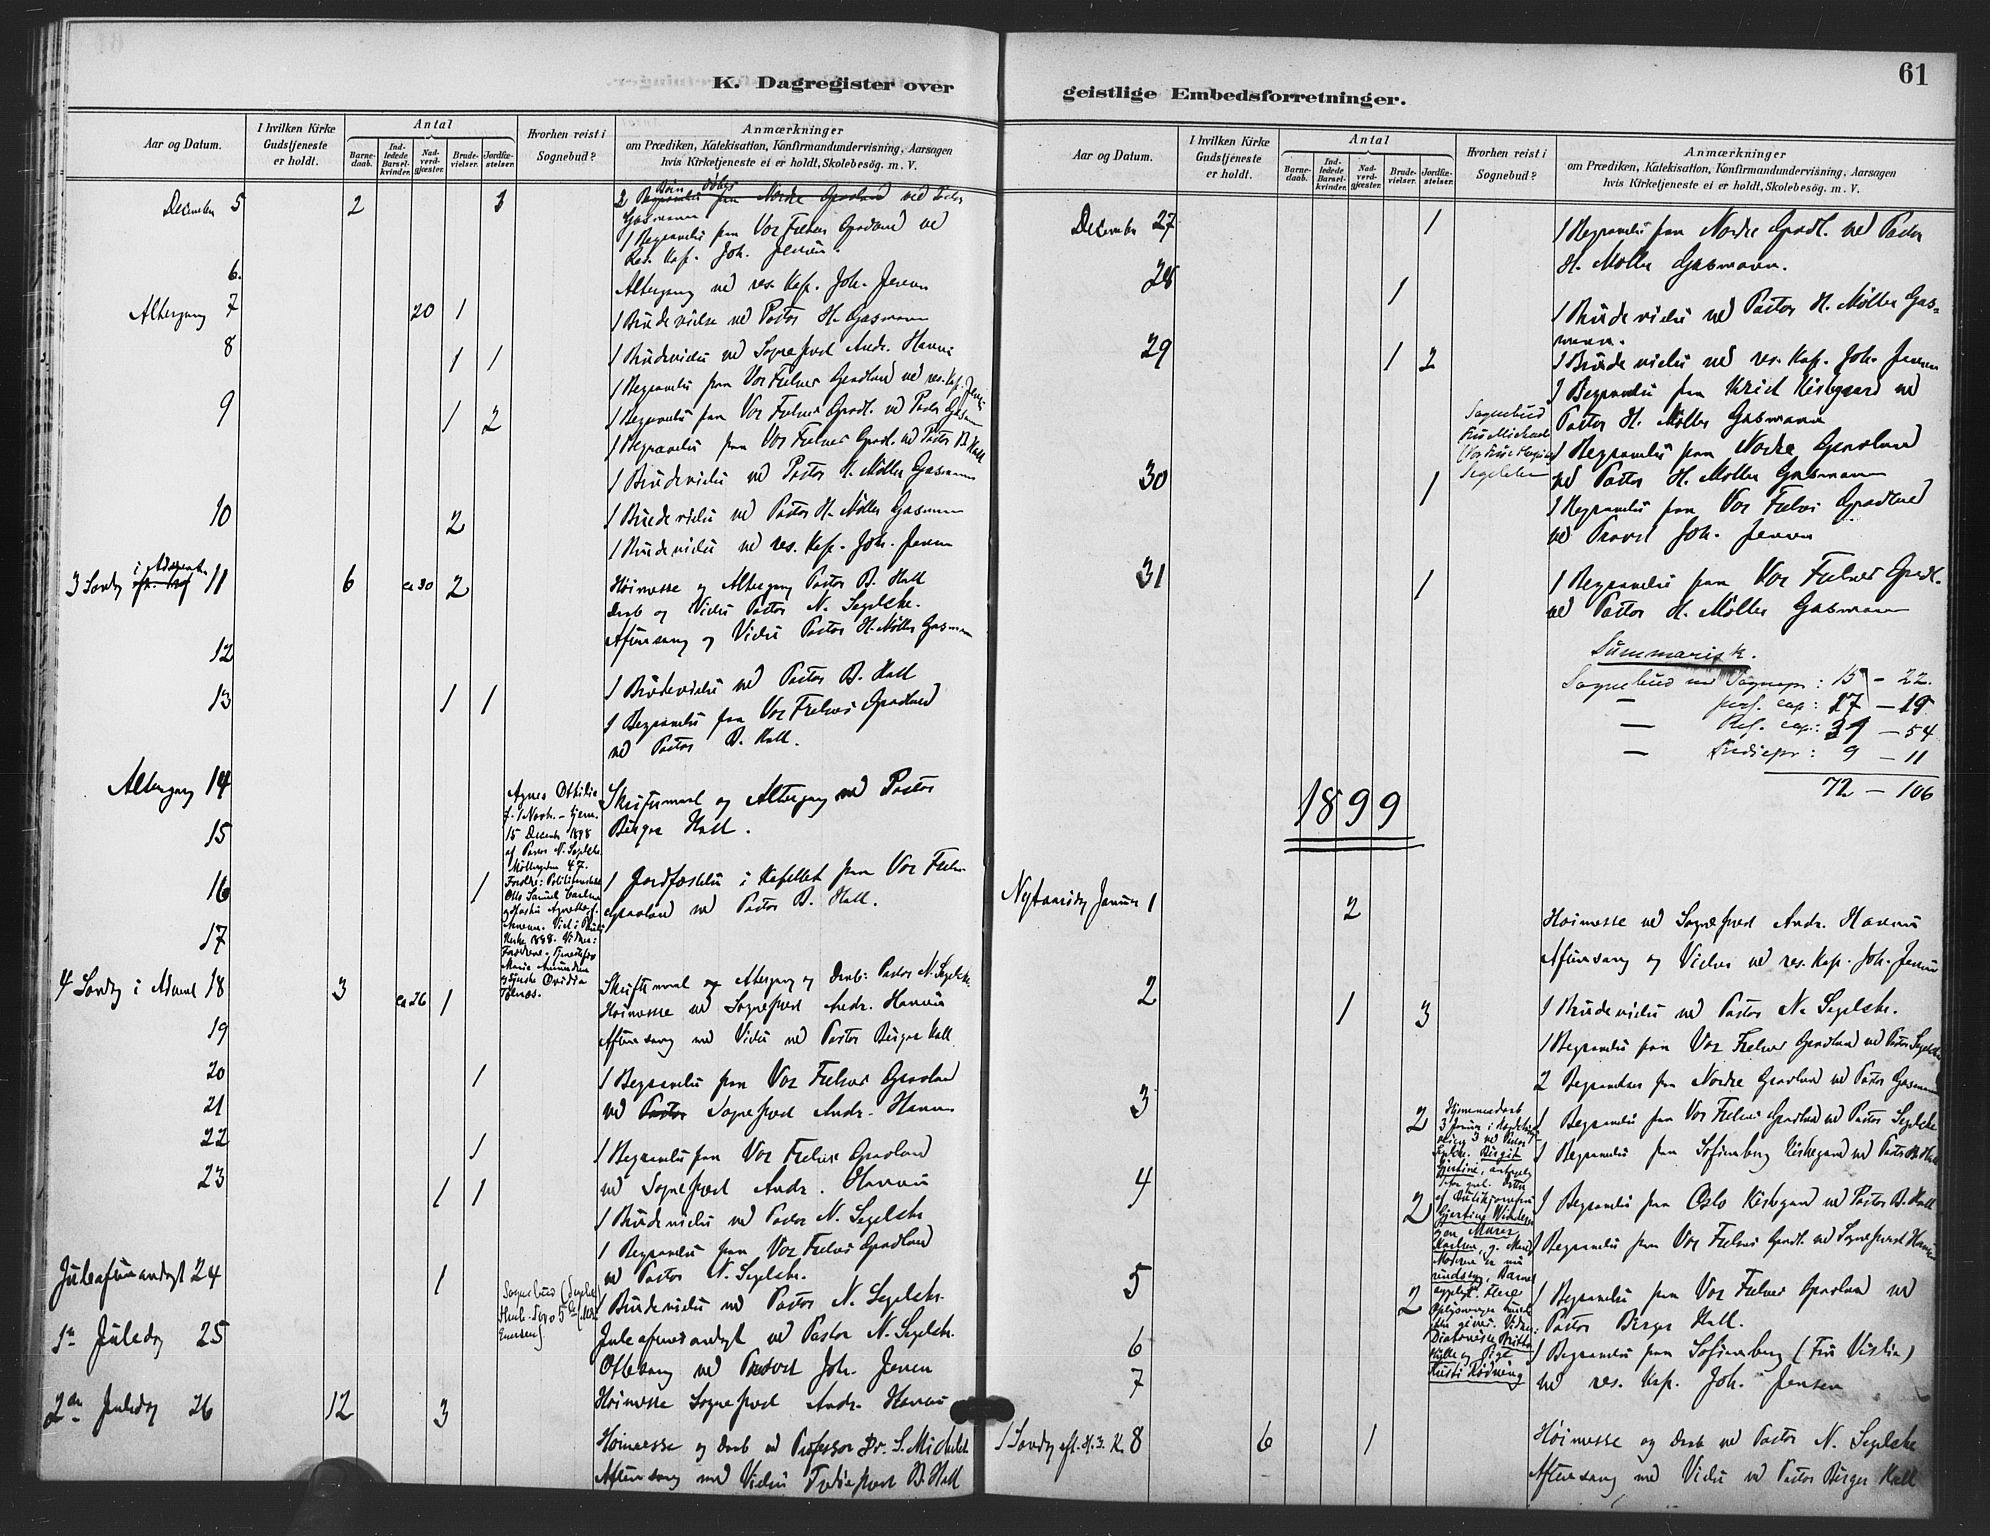 K. Dagregister over
Aar og Datum.
I hvilken Kirke Gudstjeneste er holdt.
Antal
Barne-daab.
Ind-ledede Barsel-kvinder.
Nad-verd-gjæster.
Brude-vielser.
Jordfæ-stelser.
Hvorhen reist i Sognebud?
Anmærkninger
om Prædiken, Katekisation, Konfirmandundervisning, Aarsagen
hvis Kirketjeneste ei er holdt, Skolebesøg. m. V.
December 5 2 3
2 Børn døbes ved
Gasmann
1 Begravelse fra Vor Frelsers Gravlund ved
Res. Kap. Joh. Jensen.
6.
Altergang ved res. Kap. Joh. Jensen
Altergang 7 20 1
1 Brudevielse ved Pastor H. Gasmann
8 1 1
1 Brudevielse ved Sogneprest Andr. Hansen
1 Begravelse fra Vor Frelsers Gravlund ved res. Kap. Jensen
9 1 2
1 Begravelse fra Vor Frelsers Gravl. ved Pastor Gasmann
1 Begravelse fra Vor Frelsers Gravl. ved Pastor B. Hall
1 Brudevielse ved Pastor H. Møller Gasmann
10 2
1 Brudevielse ved Pastor H. Møller Gasmann
1 Brudevielse ved res. Kap. Joh. Jensen
3 Søndag i Advent 11 6 ca 30 2
Høimesse og Altergang Pastor B. Hall
Daab og Vielse Pastor N. Segelcke.
Aftensang og Vielse Pastor H. Møller Gasmann
12
1 Brudevielse ved Pastor B. Hall
13 1 1
1 Begravelse fra Vor Frelsers Gravlund
ved Pastor B. Hall.
Altergang 14
Skriftemaal og Altergang ved Pastor
Birger Hall.
15
Agnes Othilie
15 Decembr 1898
af Pastor N. Segelcke
16 1
1 Jordfæstelse i Kapellet fra Vor Frelsers
Gravlund ved Pastor B. Hall.
17
4 Søndag i Advent 18 3 ca 26 1
Skriftemaal og Altergang og Daab: Pastor N. Segelcke.
Høimesse ved Sogneprest Andr. Hansen
Aftensang med Vielse ved Pastor Birger Hall
19
20 1
1 Begravelse fra Vor Frelsers Gravlund
21
ved Pastor Sogneprest Andr. Hansen
22 1
1 Begravelse fra Vor Frelsers Gravlund
23 1 1
ved Sogneprest Andr. Hansen
1 Brudevielse ved Pastor N. Segelcke
1 Begravelse fra Vor Frelsers Gravlund
ved Pastor N. Segelcke.
Juleaftenandagt 24 1
1 Brudevielse ved Pastor N. Segelcke.
1ste Juledag 25
Juleaftensandagt ved Pastor N. Segelcke.
Ottesang ved Provst Joh. Jensen
2den Juledag 26 12 3
Høimesse Sogneprest Andr. Hansen
Høimesse og Daab ved Professor Dr. S. Michelet
Aftensang med Vielse Frediaprest B. Hall
geistlige Embedsforretninger.
61
Aar og Datum.
I hvilken Kirke Gudstjeneste er holdt.
Antal
Barne-daab.
Ind-ledede Barsel-kvinder.
Nad-verd-gjæster.
Brude-vielser.
Jordfæ-stelser.
Hvorhen reist i Sognebud?
Anmærkninger
om Prædiken, Katekisation, Konfirmandundervisning, Aarsagen
hvis Kirketjeneste ei er holdt, Skolebesøg. m. V.
December 27 1
1 Begravelse fra Nordre Gravl. ved Pastor
H. Møller Gasmann.
28 1
1 Brudevielse ved Pastor H. Møller Gas-
mann.
29 1 2
1 Brudevielse ved res. Kap. Joh. Jensen
1 Begravelse fra Krist Kirkegaard ved
Pastor H. Møller Gasmann
1 Begravelse fra Nordre Gravlund
ved Pastor H. Møller Gasmann
Sognebud
30 1
1 Begravelse fra Vor Frelsers Gravlund
ved Provst Joh. Jensen
31 1
1 Begravelse fra Vor Frelsers Gravl.
ved Pastor H. Møller Gasmann
Summarisk.
Sognebud ved Sognepr: 15 - 22.
— pers. cap: 17 - 19
— Res. cap: 31 - 54
— 9 - 11
72 - 106
1899
Nytaarsdag Januar 1 2
Høimesse ved Sogneprest Andr. Hansen
Aftensang og Vielser ved res. Kap. Joh. Jensen
2 1 3
1 Brudevielse ved Pastor N. Segelcke.
1 Begravelse fra Vor Frelsers Gravlund ved Pastor Segelcke
2 Begravelser fra Nordre Gravlund ved Pastor Gasmann
3 2
1 Begravelse fra Vor Frelsers Gravlund ved Pastor Segelcke
1 Begravelse fra Sofienberg Kirkegaard ved Pastor B. Hall
4 2
1 Begravelse fra Oslo Kirkegaard ved Pastor B. Hall
1 Begravelse fra Vor Frelsers Gravl. ved Sogneprest Hansen
5 2
1 Begravelse fra Vor Frelsers Gravlund ved
Pastor Birger Hall.
6
1 Begravelse fra Sofienberg
7
ved res. Kap. Joh. Jensen
1 Søndag eft. H. 3. K. 8 6 1
Høimesse og Daab ved Pastor N. Segelcke
Aftensang med Vielse ved Pastor Birger Hall